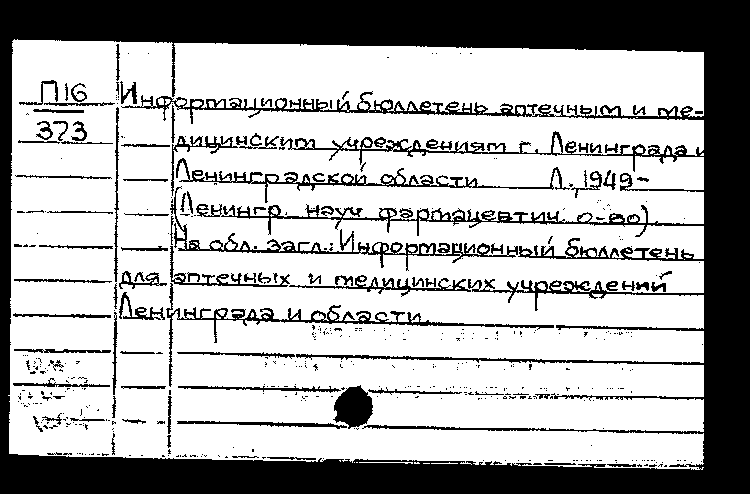 П16
373
Информационный бюллетень аптечным и ме-
дицинским учреждениям г. Ленинграда и
Ленинградской области Л., 1949-
(Ленингр. науч. фармацевтич. о-во).
На обл. загл.: Информационный бюллетень
для аптечных и медицинских учреждений
Ленинграда и области.